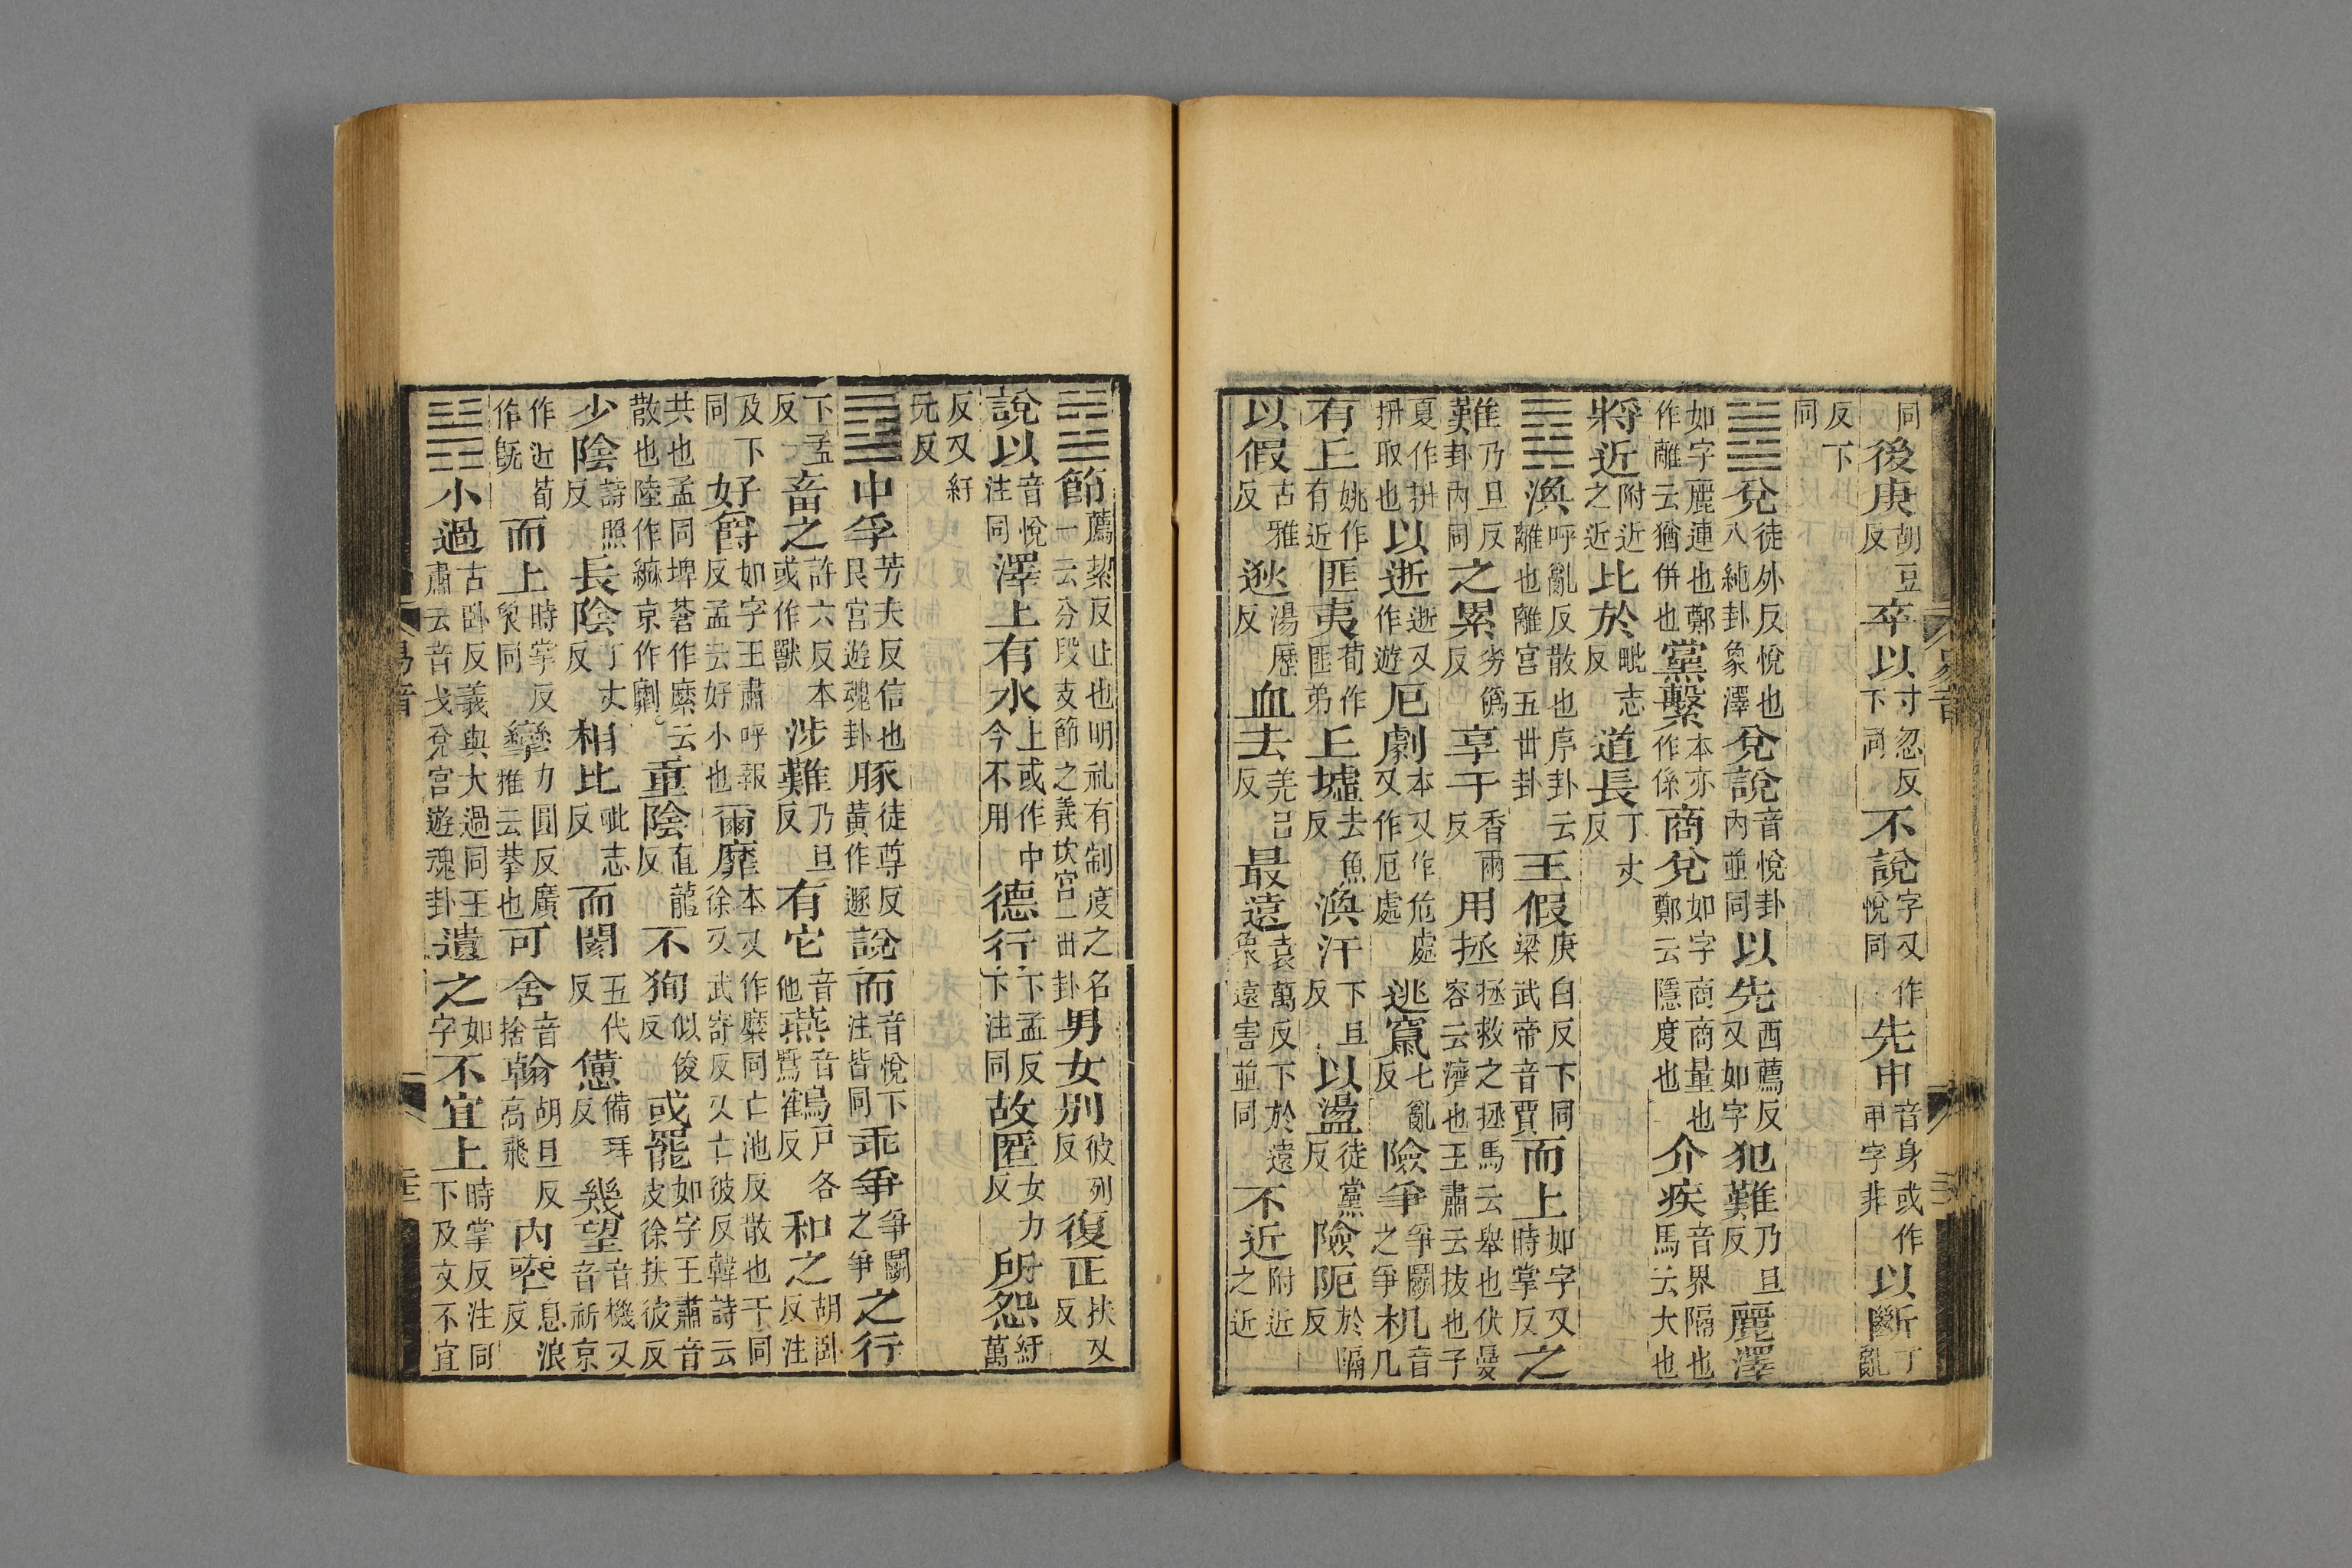 同後庚胡豆反卒以寸忽反下同不說字又作悅同先申音身或作甲字非以斷丁亂
反下同
䷹兌徒外反悅也八純卦象澤兌說音悅卦內並同以先西薦反又如字犯難乃旦反麗澤
如字麗連也鄭作離云猶併也黨繫本亦作係商兌如字商商量也鄭云隱度也介疾音界隔也馬云大也
將近附近之近比於毗志反道長丁丈反
䷺渙呼亂反散也序卦云離也離宮五世卦王假庚白反下同梁武帝音賈而上如字又時掌反之
難乃旦反卦內同之累劣僞反享干香兩反用拯拯救之拯馬云舉也伏曼容云濟也王肅云拔也子
夏作抍抍取也以逝逝又作遊厄劇本又作危處又作厄處逃竄七亂反險爭爭鬭之爭机音几
有丘姚作有近匪夷荀作匪弟丘墟去魚反渙汗下旦反以盪徒黨反險阨於隔反
以假古雅反逖湯歷反血去羌呂反最遠袁萬反下於遠象遠害並同不近附近之近
易音
䷻節薦絜反止也明礼有制度之名一云分段支節之義坎宮一世卦男女别彼列反復正扶又反
說以音悅注同澤上有水上或作中今不用德行下孟反注同故匿女力反所怨紆萬
反又紆元反
䷼中孚芳夫反信也艮宮遊魂卦豚徒尊反黃作遯說而音悅下注皆同乖爭爭鬭之爭之行
下孟反畜之許六反本或作獸涉難乃旦反有它音他燕音鷰鶴戶各反和之胡臥反注
及下同好爵如字王肅呼報反孟云好小也爾靡本又作縻同亡池反散也干同徐又武寄反又亡彼反韓詩云
共也孟同埤蒼作縻云散也陸作䌕京作劘重陰直龍反不徇似俊反或罷如字王肅音皮徐扶彼反
少陰詩照反長陰丁丈反相比毗志反而閡五代反憊備拜反幾望音機又音祈京
作近荀作既而上時掌反衆同攣力圓反廣雅云攣也可舍音捨翰胡旦反高飛內喪息浪反
䷽小過古臥反義與大過同王肅云音戈兌宮遊魂卦遺之如字不宜上時掌反注同下及文不宜
易音